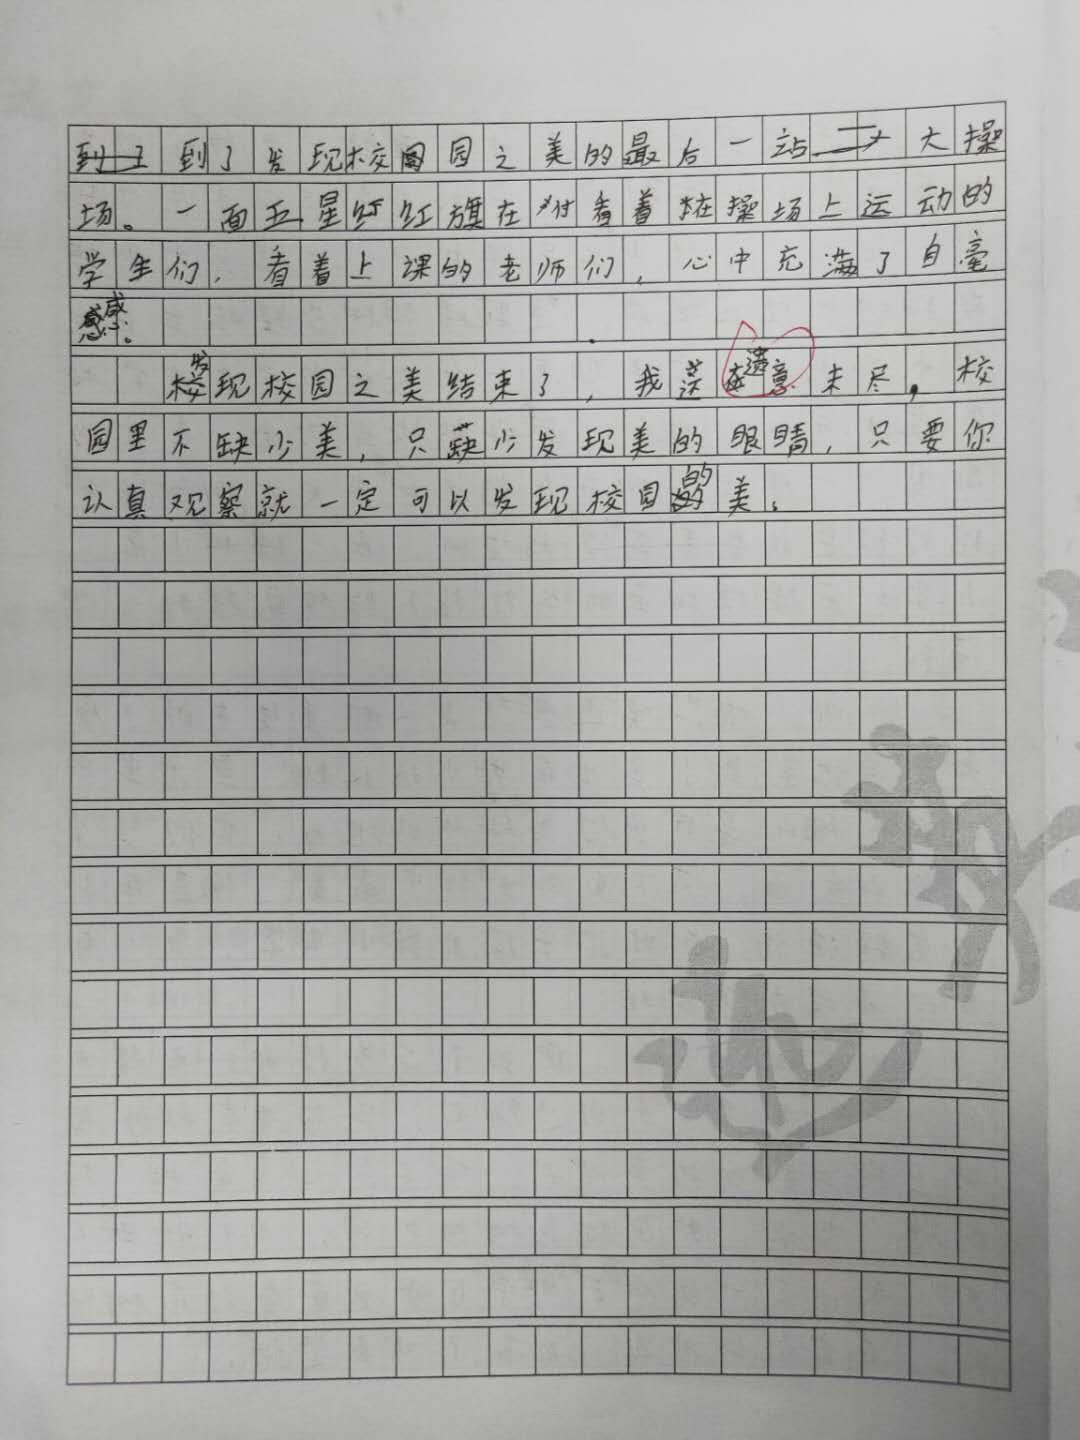 到了发现校园之美的最后一站——大操
场。一面五星红红旗在对看着在操场上运动的
学生们，看着上课的老师们，心中充满了自毫
感。
发现校园之美结束了，我还遗意未尽，校
园里不缺少美，只缺少发现美的眼睛，只要你
认真观察就一定可以发现校园的美。